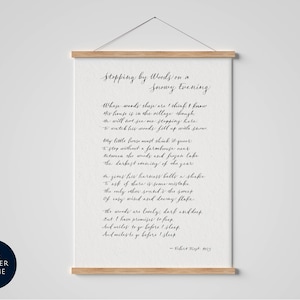 Stopping by Woods on a
Snowy Evening
Whose woods these are I think I know
His house is in the village though
He will not see me stopping here
To watch his woods fill up with snow
My little horse must think it queer
To stop without a farmhouse near
Between the woods and frozen lake
The darkest evening of the year
He gives his harness bells a shake
To ask if there is some mistake
The only other sound's the sweep
Of easy wind and downy flake
The woods are lovely, dark and deep
But I have promises to keep
And miles to go before I sleep
And miles to go before I sleep
~ Robert Frost